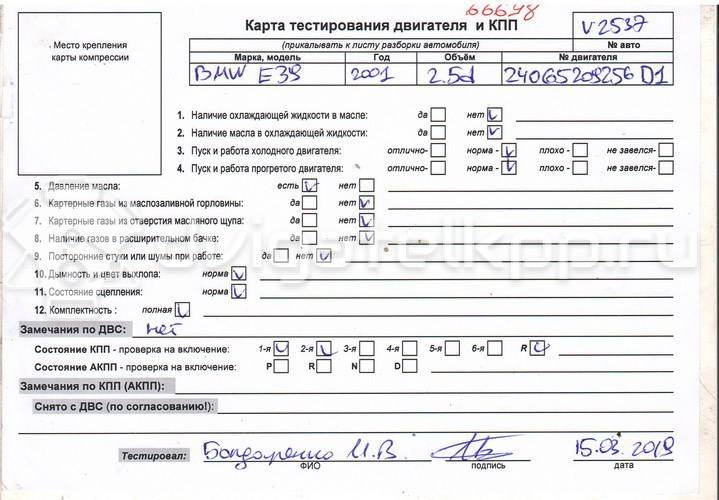 66648
Карта тестирования двигателя и КПП
V2537
Место крепления карты компрессии
(прикалывать к листу разборки автомобиля)
№ авто
Марка, модель Год Объём № двигателя
BMW E39 2001 2.5d 24065209256D1
1. Наличие охлаждающей жидкости в масле: да нет
2. Наличие масла в охлаждающей жидкости: да нет
3. Пуск и работа холодного двигателя: отлично- норма - плохо - не завелся-
4. Пуск и работа прогретого двигателя: отлично- норма - плохо - не завелся-
5. Давление масла: есть нет
6. Картерные газы из маслозаливной горловины: да нет
7. Картерные газы из отверстия масляного щупа: да нет
8. Наличие газов в расширительном бачке: да нет
9. Посторонние стуки или шумы при работе: да нет
10. Дымность и цвет выхлопа: норма
11. Состояние сцепления: норма
12. Комплектность : полная
Замечания по ДВС: нет
Состояние КПП - проверка на включение: 1-я 2-я 3-я 4-я 5-я 6-я R
Состояние АКПП - проверка на включение: P R N D
Замечания по КПП (АКПП):
Снято с ДВС (по согласованию!):
Тестировал: Бондаренко И.В. 15.03.2019
ФИО подпись дата
dvigatelkpp.ru